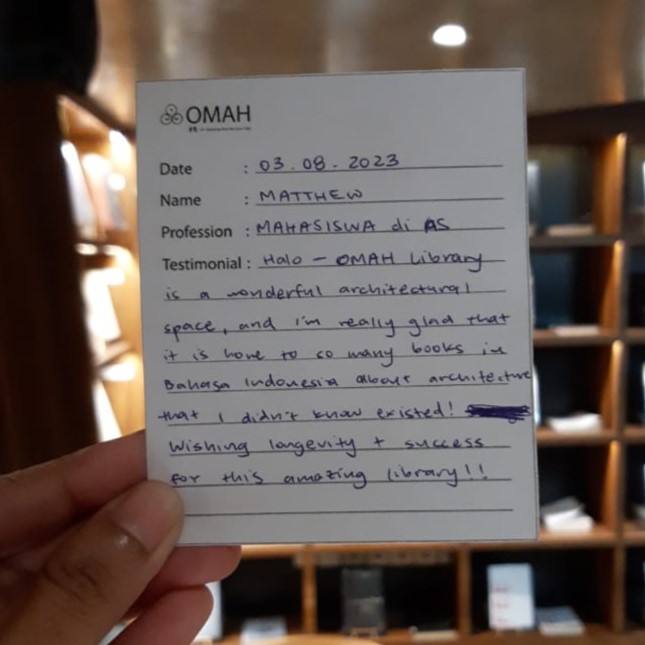 OMAH
Date : 03.08.2023
Name : MATTHEW
Profession : MAHASISWA di AS
Testimonial : Halo - OMAH Library
is a wonderful architectural
space, and i'm really glad that
it is home to so many books in
Bahasa Indonesia about architecture
that I didn't know existed!
Wishing longevity + success
for this amazing library!!